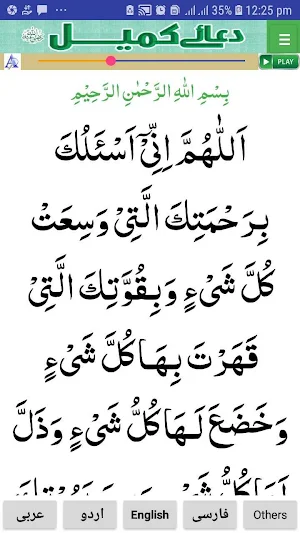 35% 12:25 pm
دعائے کمیل
PLAY
بِسْمِ اللهِ الرَّحْمٰنِ الرَّحِيْمِ
اَللّٰهُمَّ اِنِّيْٓ اَسْئَلُكَ
بِرَحْمَتِكَ الَّتِيْ وَسِعَتْ
كُلَّ شَيْءٍ وَبِقُوَّتِكَ الَّتِيْ
قَهَرْتَ بِهَا كُلَّ شَيْءٍ
وَخَضَعَ لَهَا كُلُّ شَيْءٍ وَذَلَّ
عربی اردو English فارسی Others